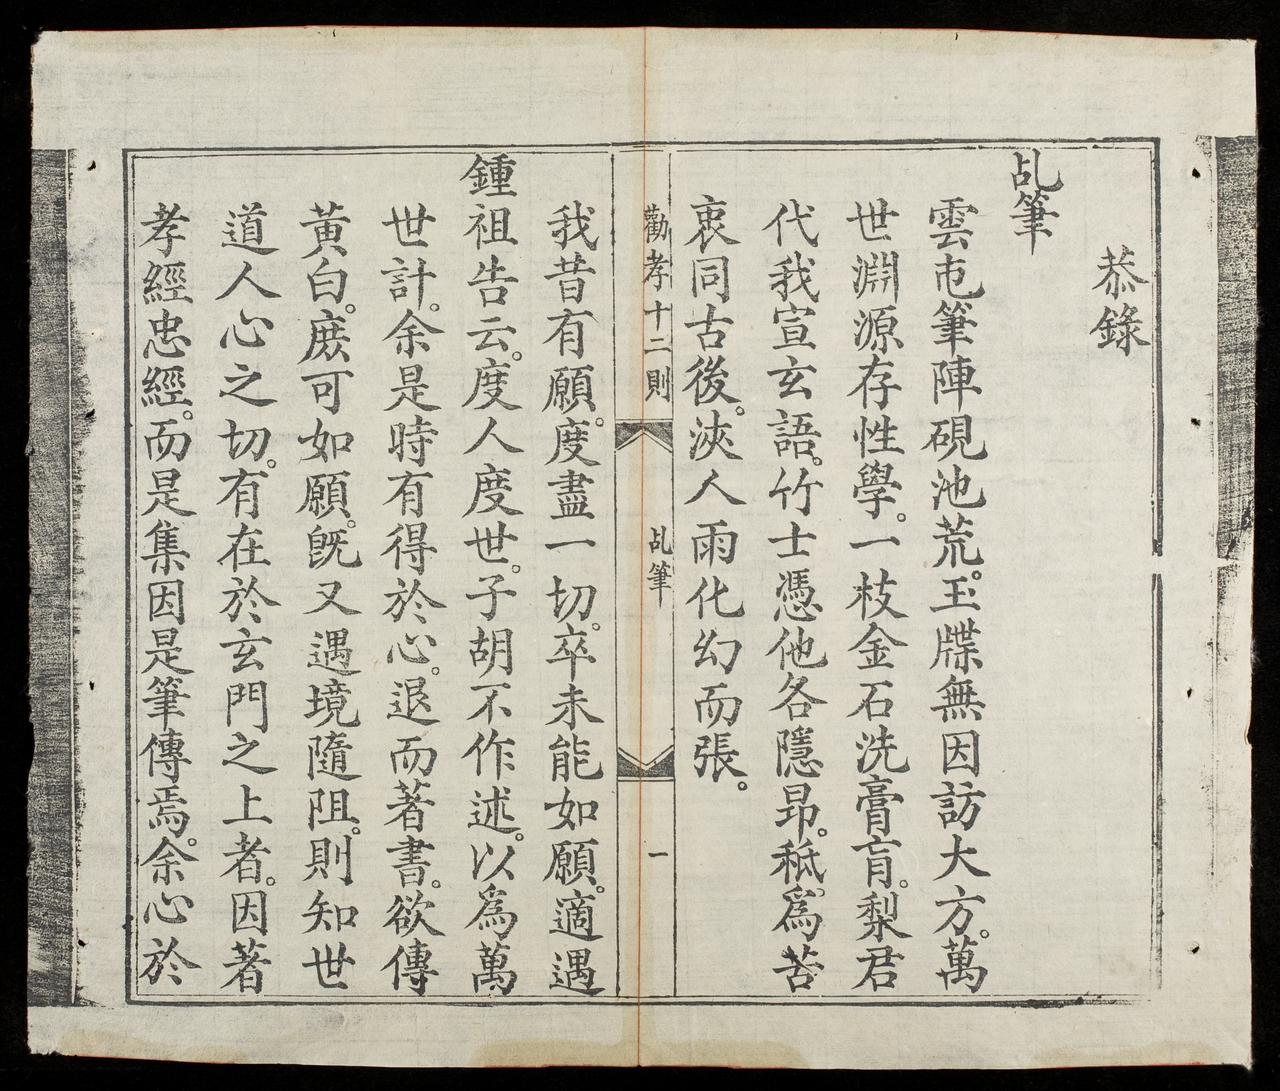 恭錄
乩筆
雲屯筆陣硯池荒。玉牒無因訪大方。萬
世淵源存性學。一枝金石洗膏肓。梨君
代我宣玄語。竹士憑他各隱昂。秪爲苦
衷同古後。浹人雨化幻而張。
勸孝十二則
乩筆
一
我昔有願。度盡一切。卒未能如願。適遇
鍾祖告云。度人度世。子胡不作述。以爲萬
世計。余是時有得於心。退而著書。欲傳
黃白。庶可如願。旣又遇境隨阻。則知世
道人心之切。有在於玄門之上者。因著
孝經忠經。而是集因是筆傳焉。余心於